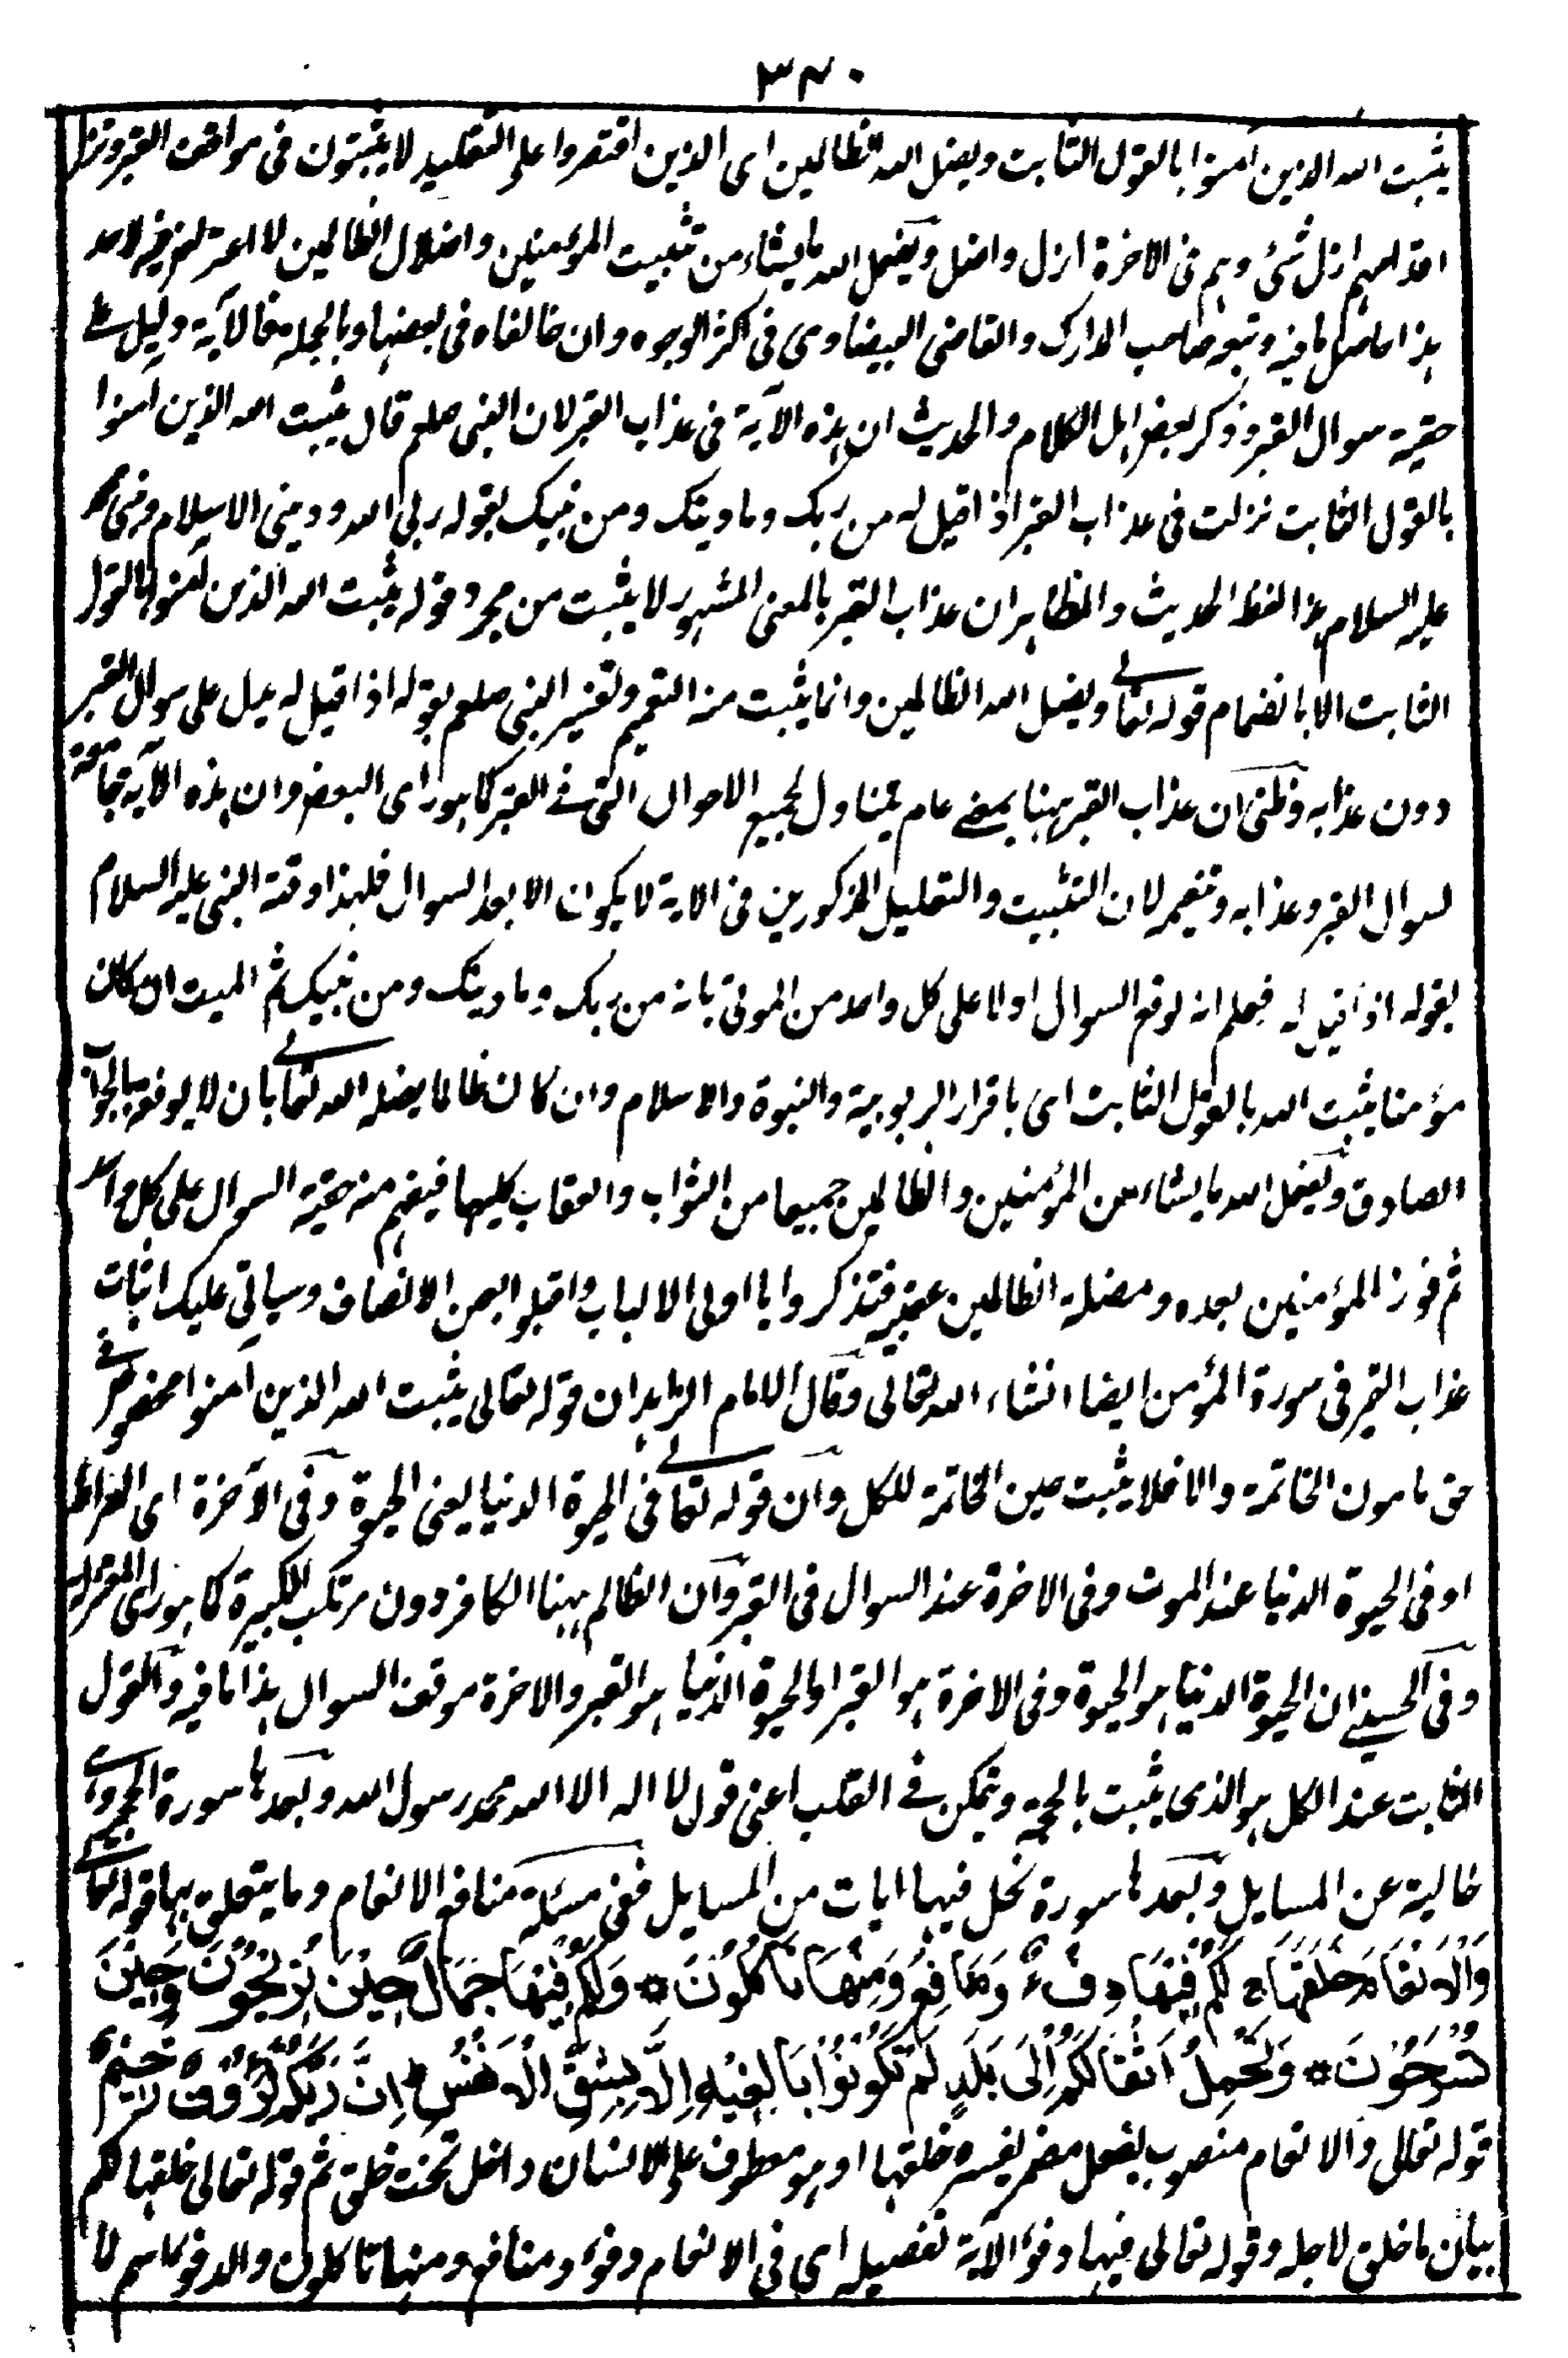 ٣٤٠
يثبت الله الذين آمنوا بالقول الثابت ويضل الله الظالمين اى الذين اقتصروا على التقليد لا يثبتون فى مواقف القبر وتزل
اقدامهم ازل شئ وهم فى الاخرة ازل واضل ويفعل الله ما يشاء من تثبيت المؤمنين واضلال الظالمين لا اعتراض فيه لاحد
هذا حاصل ما فيه وتبعه صاحب المدارك والقاضى البيضاوى فى اكثر الوجوه وان خالفاه فى بعضها وبالجملة فالآية دليل على
حقية سوال القبر وذكر بعض اهل الكلام والحديث ان هذه الآية فى عذاب القبر لان النبى صلعم قال يثبت الله الذين امنوا
بالقول الثابت نزلت فى عذاب القبر اذا قيل له من ربك وما دينك ومن نبيك بقوله ربى الله ودينى الاسلام ونبى محمد
عليه السلام هذا لفظ الحديث والظاهر ان عذاب القبر بالمعنى المشهور لا يثبت من مجرد قوله يثبت الله الذين آمنوا بالقول
الثابت الا بانضمام قوله تعالى ويضل الله الظالمين وانما يثبت منه التعميم وتفسير النبى صلعم بقوله اذا قيل له يدل على سوال القبر
دون عذابه وظنى ان عذاب القبر ههنا بمعنى عام يتناول لجميع الاحوال التى فى القبر كما هو راى البعض وان هذه الآية جامعة
لسوال القبر وعذابه وتنعيمه لان التثبيت والتضليل المذكورين فى الاية لا يكون الا بعد السوال فلهذا وقته النبى عليه السلام
بقوله اذا قيل له فيعلم انه لوقع السوال اولا على كل واحد من الموتى بانه من ربك وما دينك ومن نبيك ثم الميت ان كان
مؤمنا يثبت الله بالقول الثابت اى باقرار الربوبية والنبوة والاسلام وان كان ظالما يضله الله تعالى بان لا يوفقه بالجواب
الصادق ويفعل الله ما يشاء من المؤمنين والظالمين جميعا من الثواب والعقاب كليهما فيفهم منه حقية السوال على كل واحد
ثم فوز المؤمنين بعده ومضلة الظالمين عقيبه فتذكروا يا اولى الالباب واقبلوا بعين الانصاف وسياتى عليك اثبات
عذاب القبر فى سورة المؤمن ايضا انشاء الله تعالى وقال الامام الزاهد ان قوله تعالى يثبت الله الذين آمنوا مخصوص فى
حق مامون الخاتمة والا فلا يثبت حين الخاتمة للكل وان قوله تعالى فى الحيوة الدنيا يعنى الحيوة وفى الآخرة اى القبر
او فى الحيوة الدنيا عند الموت وفى الاخرة عند السوال فى القبر وان الظالم ههنا الكافر دون مرتكب الكبيرة كما هو راى المعتزلة
وفى الحسينى ان الحيوة الدنيا هو الحيوة وفى الاخرة هو القبر او الحيوة الدنيا هو القبر والاخرة موقف السوال هذا ما فيه والقول
الثابت عند الكل هو الذى يثبت بالحجة ويتمكن فى القلب اعنى قول لا اله الا الله محمد رسول الله وبعدها سورة الحجر وهى
خالية عن المسايل وبعدها سورة نحل فيها ايات من المسايل ففى مسئلة منافع الانعام وما يتعلق بها قوله تعالى
وَالْاَنْعَامَ خَلَقَهَا ج لَكُمْ فِيْهَا دِفْءٌ وَّمَنَافِعُ وَمِنْهَا تَاْكُلُوْنَ * وَلَكُمْ فِيْهَا جَمَالٌ حِيْنَ تُرِيْحُوْنَ وَحِيْنَ
تَسْرَحُوْنَ * وَتَحْمِلُ اَثْقَالَكُمْ اِلٰى بَلَدٍ لَّمْ تَكُوْنُوْا بَالِغِيْهِ اِلَّا بِشِقِّ الْاَنْفُسِ ط اِنَّ رَبَّكُمْ لَرَءُوْفٌ رَّحِيْمٌ
قوله تعالى والانعام منصوب بفعل مضمر يفسره خلقها او هو معطوف على الانسان داخل تحت خلق ثم قوله تعالى خلقها لكم
بيان ما خلق لاجله وقوله تعالى فيها دفؤ الآية تفصيله اى فى الانعام دفؤ ومنافع ومنها تاكلون والدفؤ اسم لما